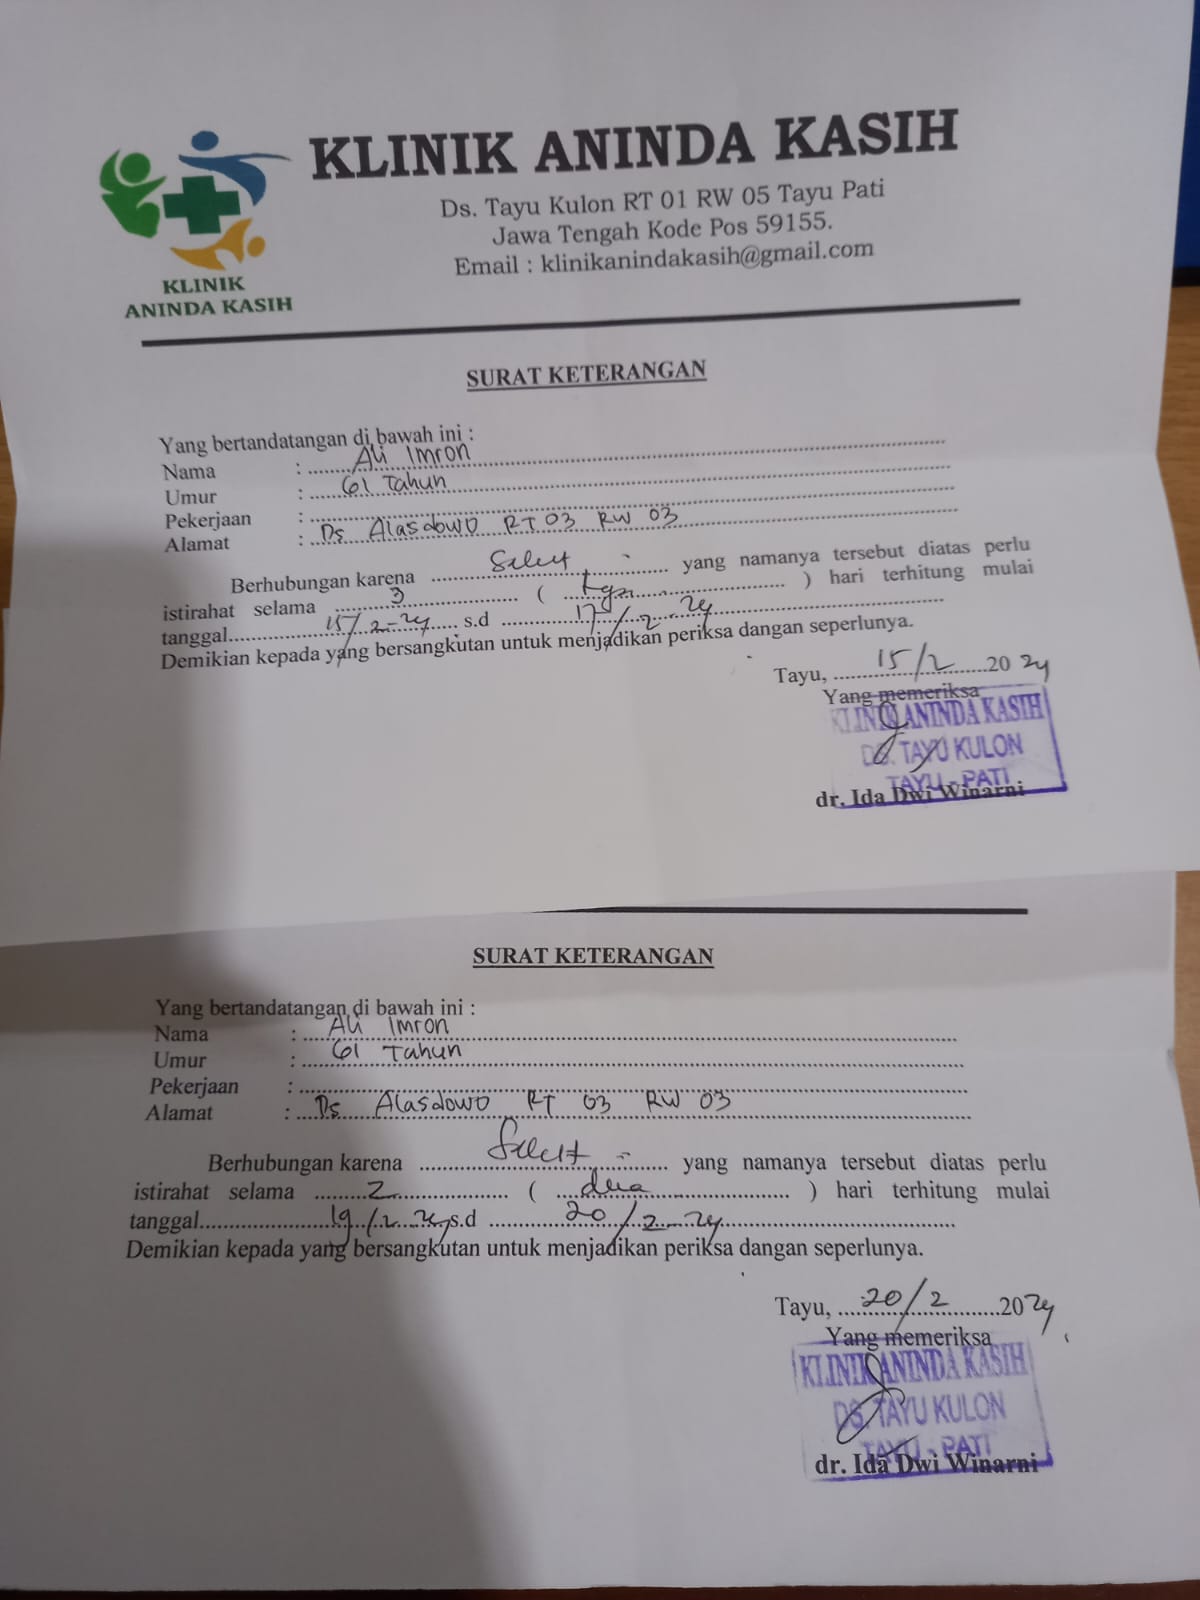 KLINIK ANINDA KASIH
Ds. Tayu Kulon RT 01 RW 05 Tayu Pati
Jawa Tengah Kode Pos 59155.
Email : klinikanindakasih@gmail.com
KLINIK
ANINDA KASIH
SURAT KETERANGAN
Yang bertandatangan di bawah ini :
Nama : Ali Imron
Umur : 61 Tahun
Pekerjaan :
Alamat : Ds Alasdowo RT 03 RW 03
Berhubungan karena Sakit yang namanya tersebut diatas perlu
istirahat selama 3 ( tiga ) hari terhitung mulai
tanggal 15/2-24 s.d 17/2-24
Demikian kepada yang bersangkutan untuk menjadikan periksa dangan seperlunya.
Tayu, 15/2 2024
Yang memeriksa
KLINIK ANINDA KASIH
DS. TAYU KULON
TAYU - PATI
dr. Ida Dwi Winarni
SURAT KETERANGAN
Yang bertandatangan di bawah ini :
Nama : Ali Imron
Umur : 61 Tahun
Pekerjaan :
Alamat : Ds Alasdowo RT 03 RW 03
Berhubungan karena Sakit yang namanya tersebut diatas perlu
istirahat selama 2 ( dua ) hari terhitung mulai
tanggal 19/2-24 s.d 20/2-24
Demikian kepada yang bersangkutan untuk menjadikan periksa dangan seperlunya.
Tayu, 20/2 2024
Yang memeriksa
KLINIK ANINDA KASIH
DS. TAYU KULON
TAYU - PATI
dr. Ida Dwi Winarni